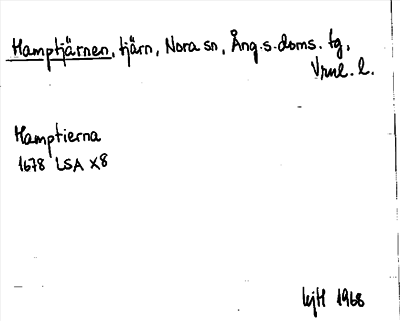 Hamptjärnen, tjärn, Nora sn, Ång.s.doms. tg,
Vrml. l.
Hamptierna
1678 LSA X8
1968